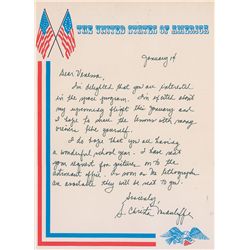 THE UNITED STATES OF AMERICA
January 14
Dear Vanessa,
I'm delighted that you are interested
in the space program. I'm excited about
my upcoming flight this January and
I hope to share the lessons with many
others like yourself.
I do hope that you are having
a wonderful school year. I have sent
your request for pictures on to the
astronaut office. As soon as the lithographs
are available they will be sent to you.
Sincerely,
S. Christa McAuliffe